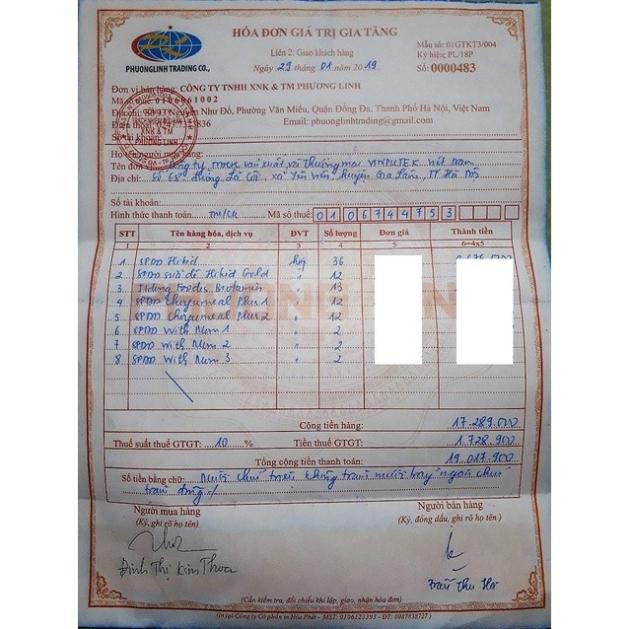 PHUONGLINH TRADING CO.,
HÓA ĐƠN GIÁ TRỊ GIA TĂNG
Liên 2: Giao khách hàng
Ngày 29 tháng 01 năm 2019
Mẫu số: 01GTKT3/004
Ký hiệu: PL/18P
Số: 0000483
Đơn vị bán hàng: CÔNG TY TNHH XNK & TM PHƯƠNG LINH
Mã số thuế:
Địa chỉ: Số 93 Nguyễn Như Đổ, Phường Văn Miếu, Quận Đống Đa, Thành Phố Hà Nội, Việt Nam
Điện thoại: Email: phuonglinhtrading@gmail.com
Số tài khoản:
XNK & TM
PHƯƠNG LINH
Họ tên người mua hàng:
Tên đơn vị: Công ty TNHH sản xuất và thương mại VINPUTEK Việt Nam
Địa chỉ: xã Yên Viên, huyện Gia Lâm, TP Hà Nội
Số tài khoản:
Hình thức thanh toán: TM/CK Mã số thuế: 0106744753
STT Tên hàng hóa, dịch vụ ĐVT Số lượng Đơn giá Thành tiền
1 2 3 4 5 6=4x5
1 SPDD Hikid hộp 36
2 SPDD sữa dê Hikid Gold " 12
3 Ildong Foodis " 13
4 SPDD Plus 1 " 12
5 SPDD Plus 2 " 12
6 SPDD With Mum 1 " 2
7 SPDD With Mum 2 " 2
8 SPDD With Mum 3 " 2
Cộng tiền hàng: 17.289.000
Thuế suất thuế GTGT: 10 % Tiền thuế GTGT: 1.728.900
Tổng cộng tiền thanh toán: 19.017.900
Số tiền bằng chữ: Mười chín triệu không trăm mười bảy ngàn chín
trăm đồng./
Người mua hàng Người bán hàng
(Ký, ghi rõ họ tên) (Ký, đóng dấu, ghi rõ họ tên)
Đinh Thị Kim Thoa
Trần Thu Hà
(Cần kiểm tra, đối chiếu khi lập, giao, nhận hóa đơn)
(In tại Công ty Cổ phần in Hòa Phát - MST: 0106123393 - ĐT: 0987838727)